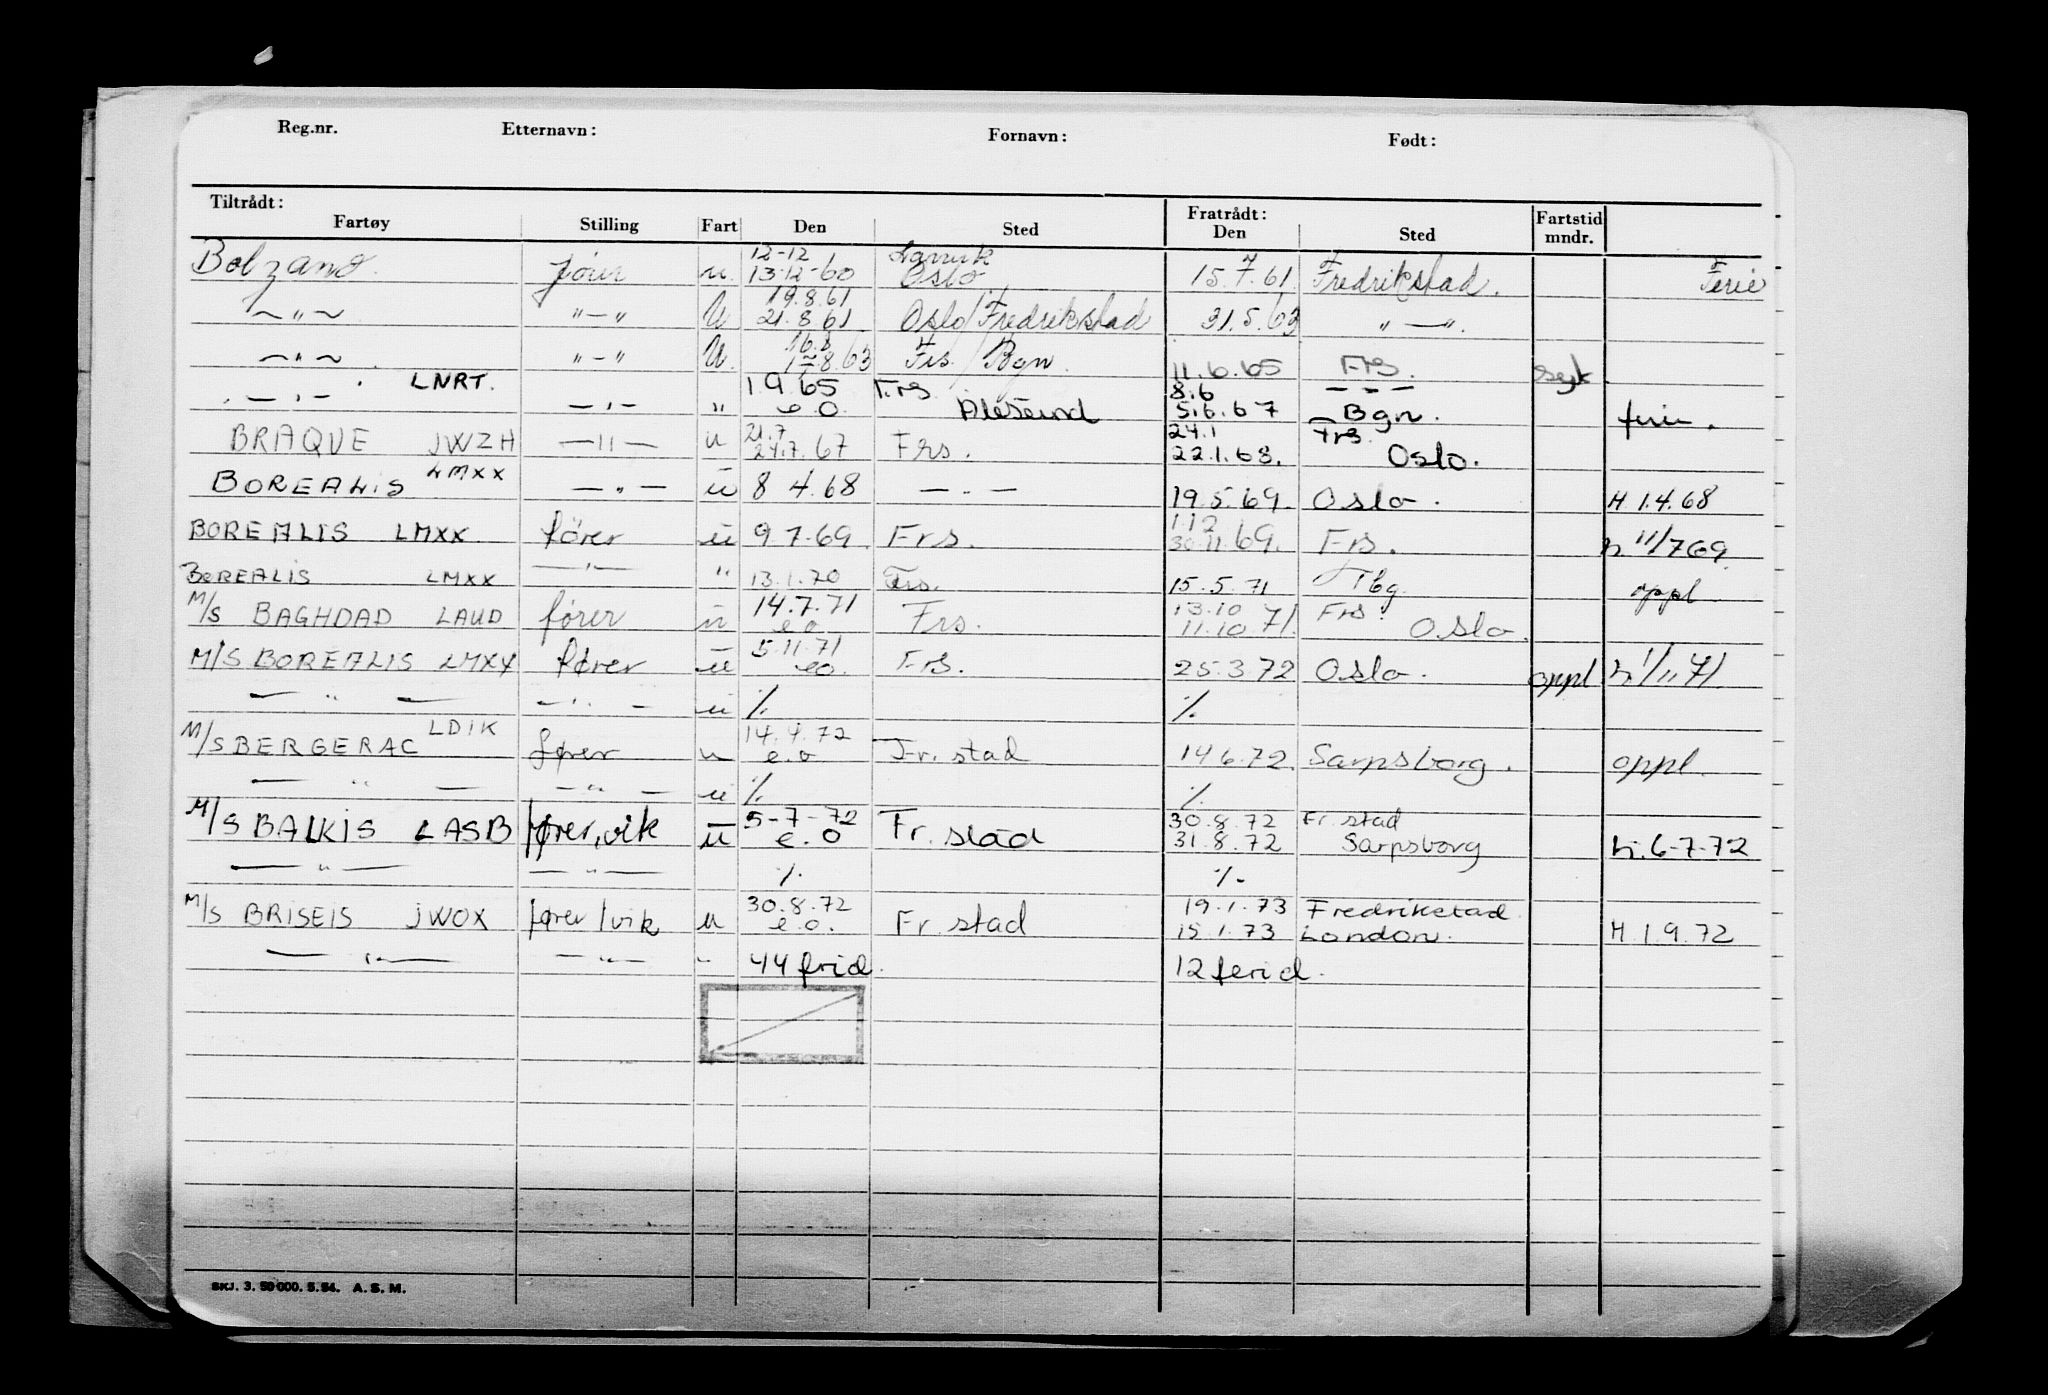 Reg.nr. Etternavn: Fornavn: Født:
Tiltrådt: Fratrådt:
Fartøy Stilling Fart Den Sted Den Sted Fartstid mndr.
12-12 Larvik
Bolzano fører u. 13-12-60 Oslo 15.7.61. Fredrikstad. Ferie
19.8.61
~ " ~ " — " U 21.8.61 Oslo/Fredrikstad 31.5.63 " — ".
16.8
~ " ~ " — " U. 8.63 Frs./Bgn. 11.6.65 Frs. syk
LNRT. 1.9.65 Frs. 8.6 — — —
— " — — " — " e.o. Ålesund 5.6.67 Bgn. ferie.
21.7 24.1 Frs.
BRAQUE JWZH — " — u 24.7.67 Frs. 22.1.68. Oslo.
BOREALIS LMXX — " — u 8 4.68 — . — 19.5.69. Oslo. H 1.4.68
1.12
BOREALIS LMXX fører u 9.7.69. Frs. 30.11.69. Frs. h 11/7 69
BOREALIS LMXX — " — " 13.1.70 Frs. 15.5.71 Tbg. oppl
14.7.71 13.10 Frs.
M/S BAGHDAD LAUD fører u e.o Frs. 11.10 71. Oslo.
5.11.71
M/S BOREALIS LMXX fører u eo. Frs. 25.3.72 Oslo. oppl h. 1/11 71
— " — — " — u %. %.
LDIK 14.4.72
M/S BERGERAC fører u e.o Fr.stad 14 6.72. Sarpsborg. oppl.
— " — — " — u %. %.
5-7-72 30.8.72 Fr.stad
M/S BALKIS LASB fører, vik u e.o Fr.stad 31.8.72 Sarpsborg h. 6-7-72
— " — — " — %. %.
30.8.72 19.1.73 Fredrikstad
M/S BRISEIS JWOX fører/vik u e.o. Fr.stad 15.1.73 London. H.1.9.72
— " — — " — " 44 frid. 12 ferid.
SKJ. 3. 50 000. 5. 54. A. S. M.